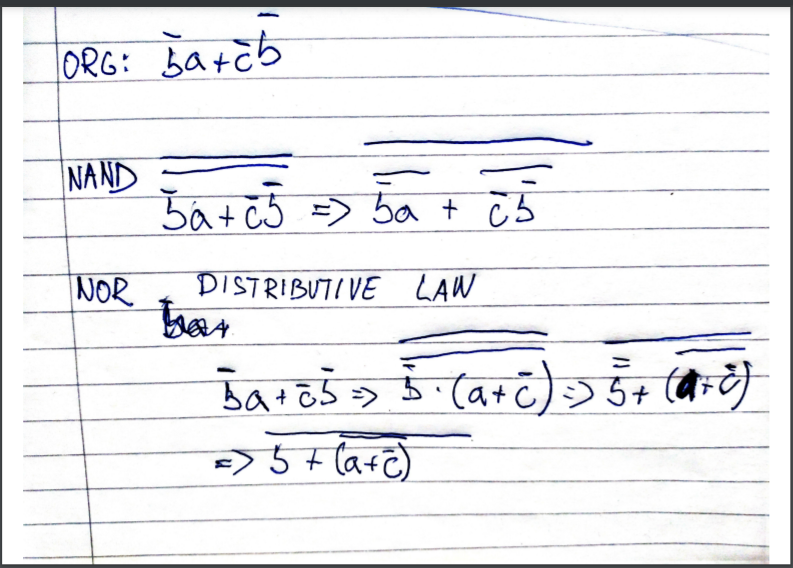 ORG: b̅a + c̅b̅
NAND \overline{\overline{b̅a + c̅b̅}} => \overline{\overline{b̅a} + \overline{c̅b̅}}
NOR DISTRIBUTIVE LAW
b̅a + c̅b̅ => \overline{\overline{b̅ · (a + c̅)}} => \overline{\overline{b̅} + \overline{(a + c̅)}}
=> \overline{b + \overline{(a + c̅)}}